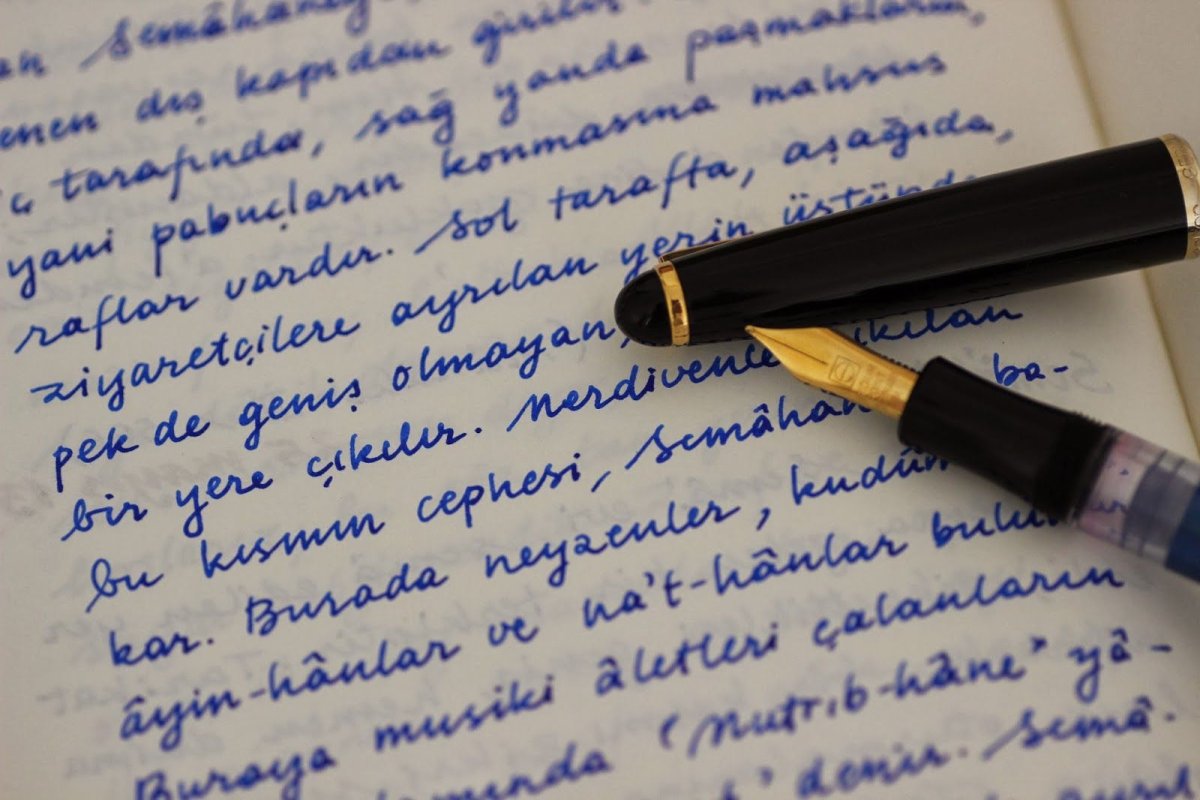 Semâhane
dış kapıdan
tarafında, sağ yanda paşmakların,
yani pabuçların konmasına mahsus
raflar vardır. Sol tarafta, aşağıda,
ziyaretçilere ayrılan yerin üstünde
pek de geniş olmayan,
bir yere çıkılır. Merdivenle çıkılan
bu kısmın cephesi, Semâhane ba-
kar. Burada neyzenler, kudüm
âyin-hânlar ve na't-hânlar
Buraya musiki âletleri çalanların
"Mutrıb-hâne" yâ-
denir. Semâ-